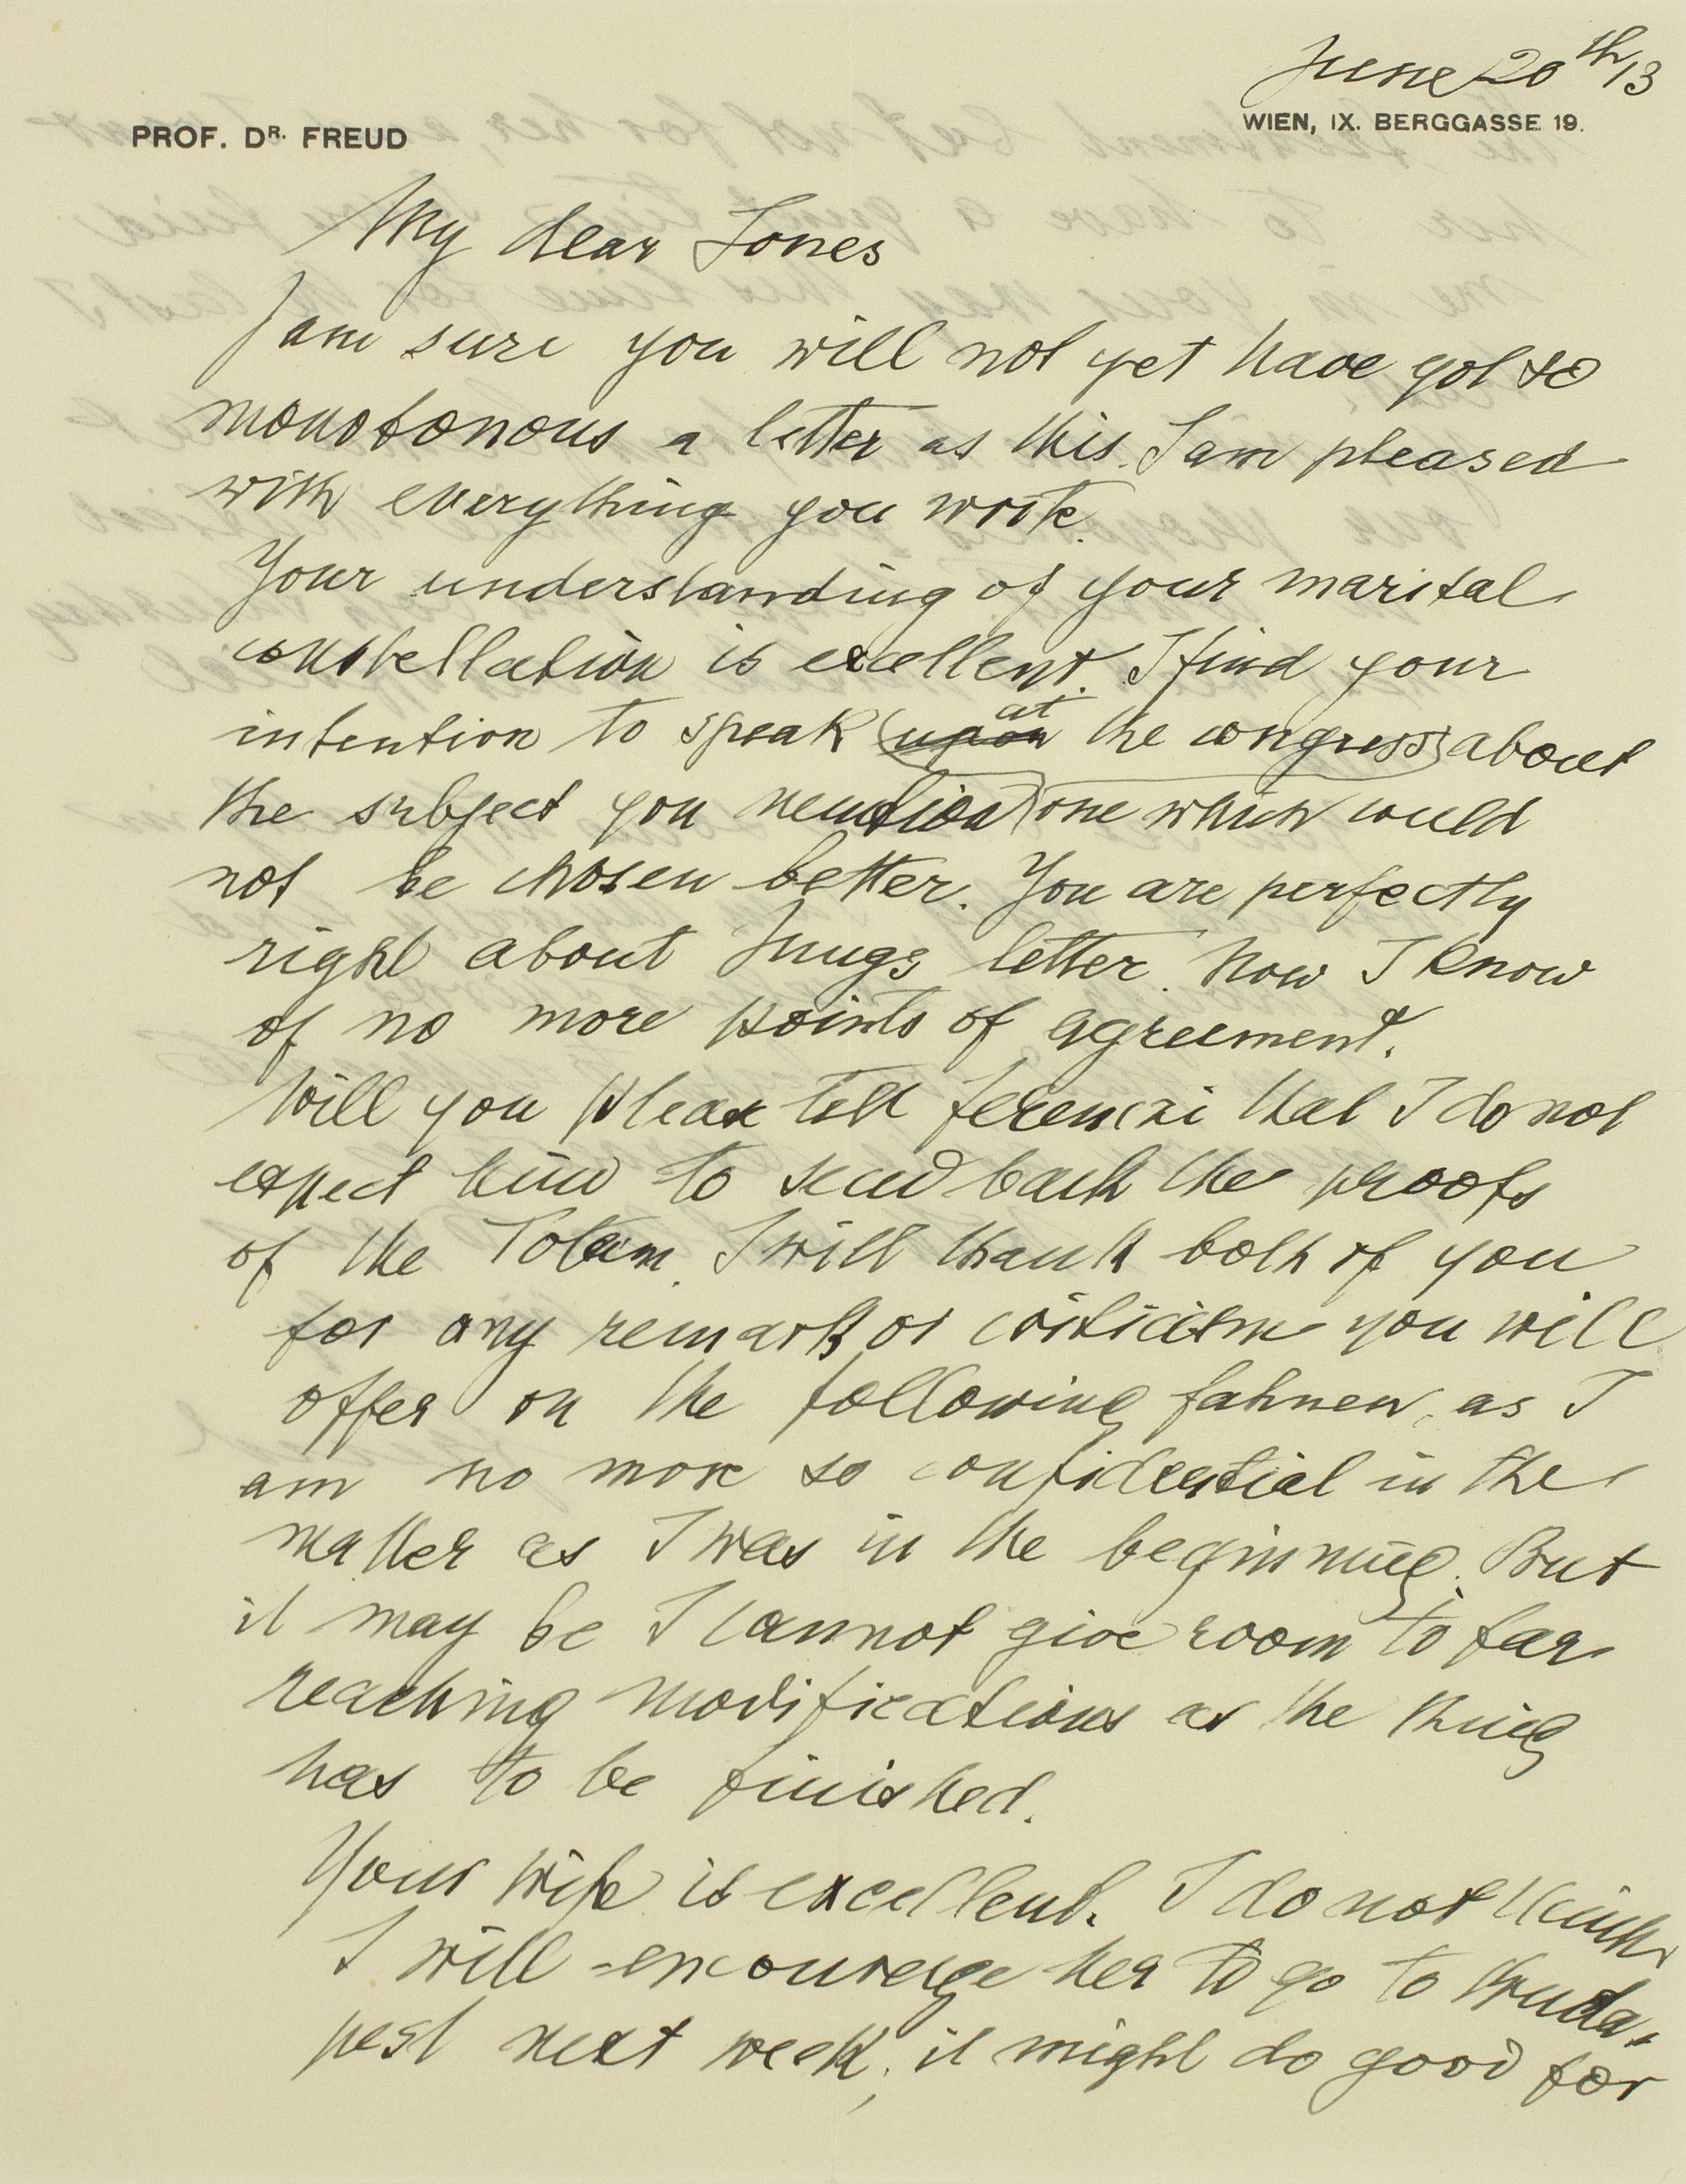 June 20th/13
PROF. DR. FREUD
WIEN, IX. BERGGASSE 19.
My dear Jones
I am sure you will not yet have got so
monotonous a letter as this. I am pleased
with everything you write.
Your understanding of your marital
constellation is excellent. I find your
intention to speak (upon at the congress) about
the subject you mention one which could
not be chosen better. You are perfectly
right about Jungs letter. Now I know
of no more points of agreement.
Will you please tell Ferenczi that I do not
expect him to send back the proofs
of the Totem. I will thank both of you
for any remark or criticism you will
offer on the following fahnen, as I
am no more so confidential in the
matter as I was in the beginning. But
it may be I cannot give room to far
reaching modifications as the thing
has to be finished.
Your wife is excellent. I do not think
I will encourage her to go to Buda-
pest next week; it might do good for